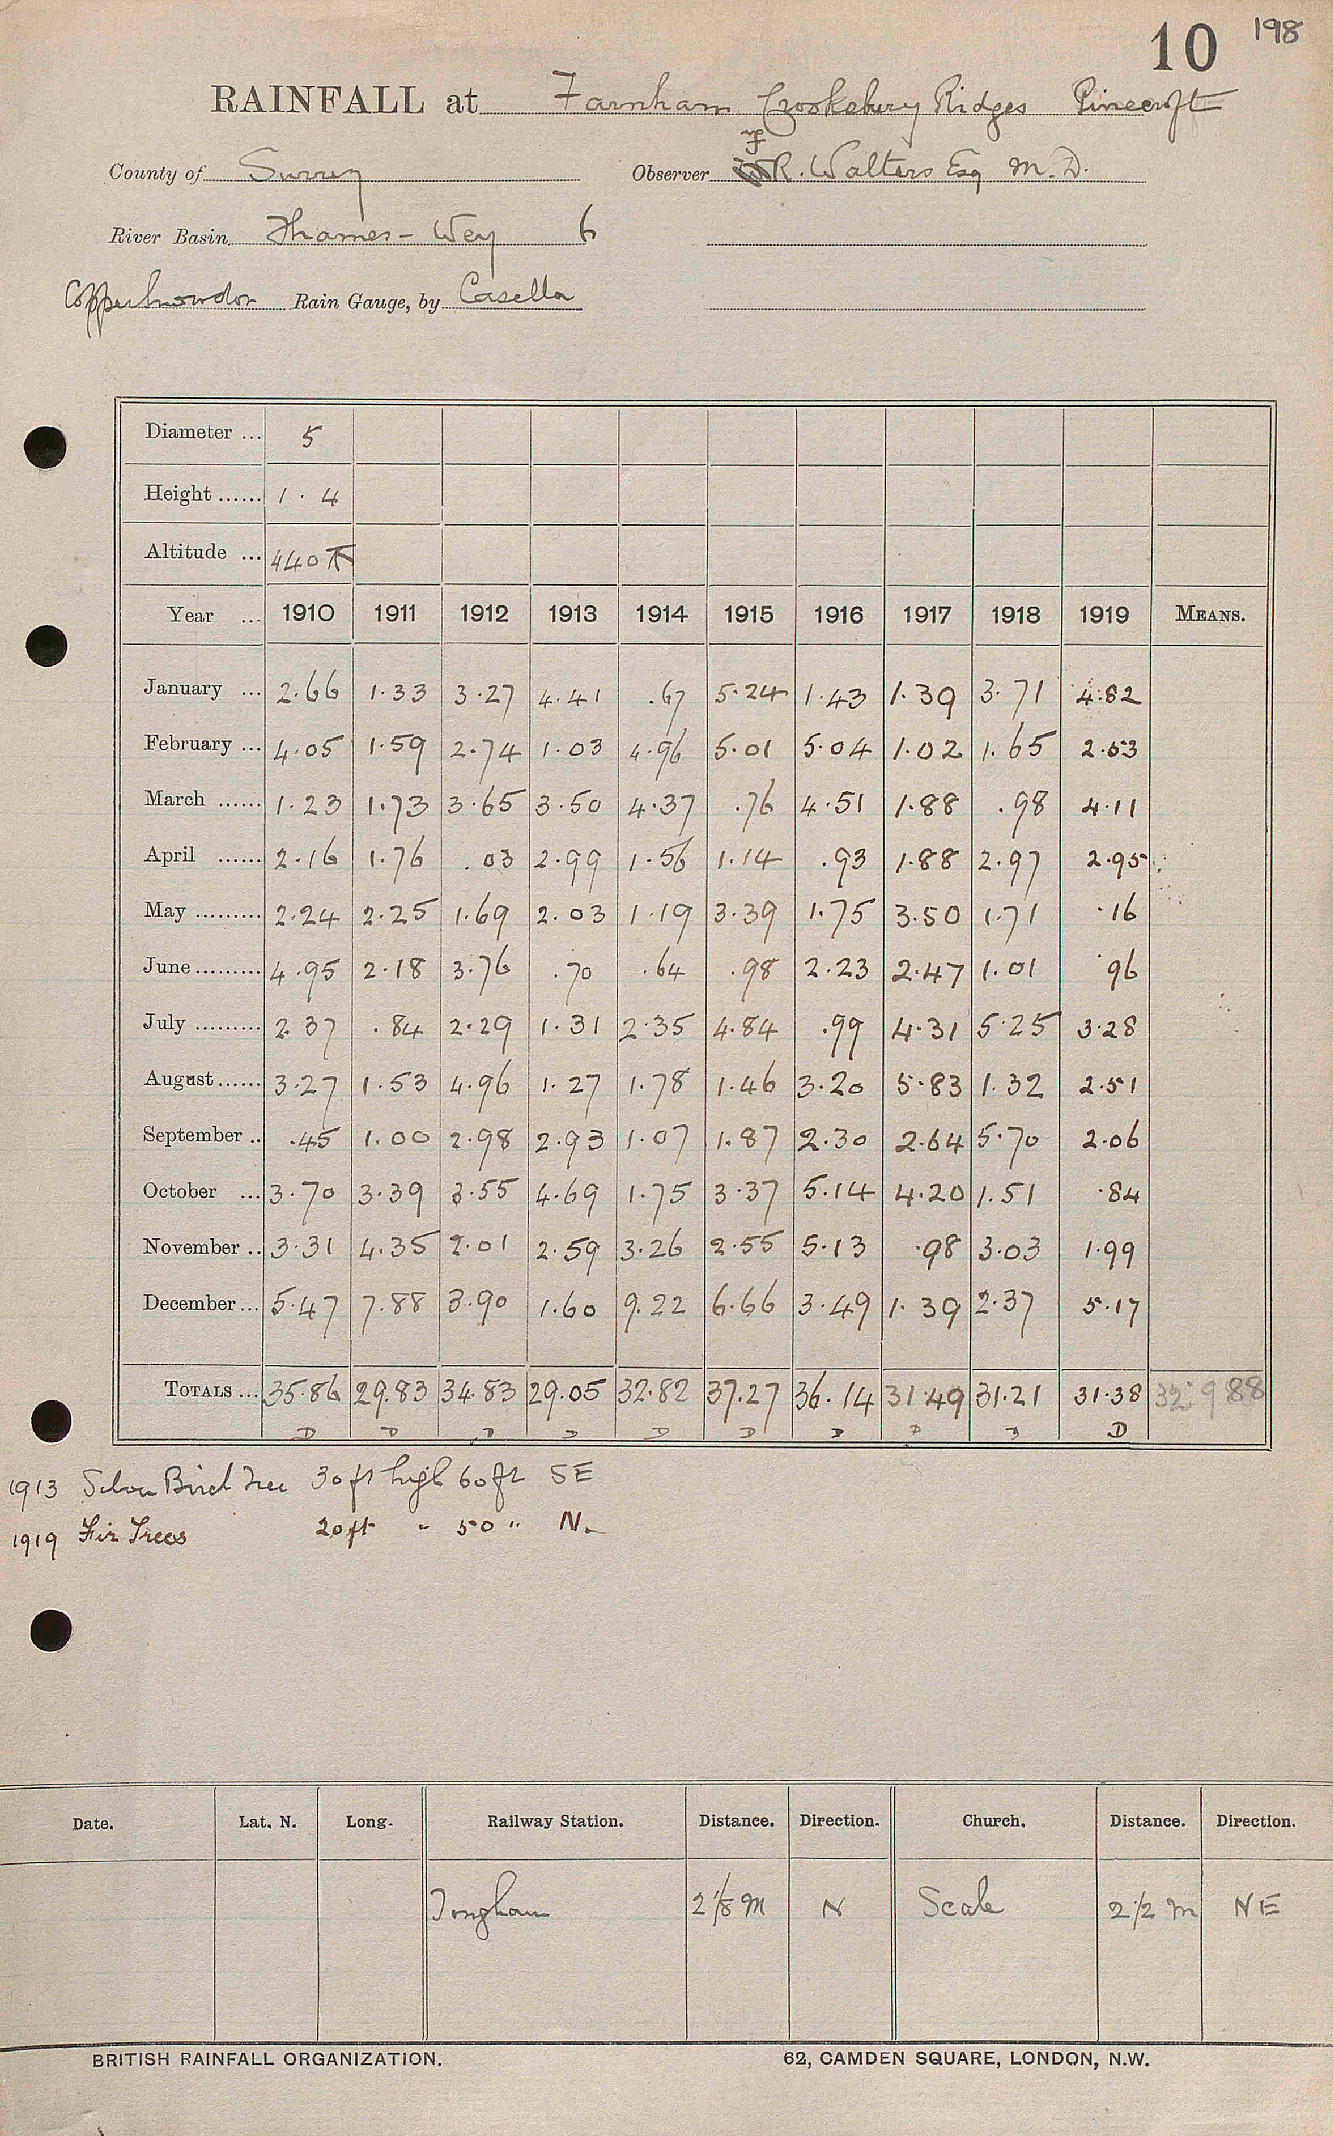 10 198
RAINFALL at Farnham Crooksbury Ridges Pinecroft
County of Surrey Observer F R. Walters Esq M.D.
River Basin Thames - Wey 6
Rain Gauge, by Casella
Diameter ... 5
Height ...... 1 . 4
Altitude ... 440 ft
Year ... 1910 1911 1912 1913 1914 1915 1916 1917 1918 1919 MEANS.
January ... 2.66 1.33 3.27 4.41 .67 5.24 1.43 1.39 3.71 4.82
February ... 4.05 1.59 2.74 1.03 4.96 5.01 5.04 1.02 1.65 2.53
March ...... 1.23 1.73 3.65 3.50 4.37 .76 4.51 1.88 .98 4.11
April ...... 2.16 1.76 .03 2.99 1.56 1.14 .93 1.88 2.97 2.95
May ......... 2.24 2.25 1.69 2.03 1.19 3.39 1.75 3.50 1.71 .16
June ......... 4.95 2.18 3.76 .70 .64 .98 2.23 2.47 1.01 .96
July ......... 2.37 .84 2.29 1.31 2.35 4.84 .99 4.31 5.25 3.28
August ...... 3.27 1.53 4.96 1.27 1.78 1.46 3.20 5.83 1.32 2.51
September .. .45 1.00 2.98 2.93 1.07 1.87 2.30 2.64 5.70 2.06
October ... 3.70 3.39 3.55 4.69 1.75 3.37 5.14 4.20 1.51 .84
November .. 3.31 4.35 2.01 2.59 3.26 2.55 5.13 .98 3.03 1.99
December ... 5.47 7.88 3.90 1.60 9.22 6.66 3.49 1.39 2.37 5.17
TOTALS ... 35.86 29.83 34.83 29.05 32.82 37.27 36.14 31.49 31.21 31.38 32.988
D D D D D D D D D
1913 Silver Birch Tree 30 ft high 60 ft SE
1919 Fir Trees 20 ft " 50 " N.
Date. Lat. N. Long. Railway Station. Distance. Direction. Church. Distance. Direction.
Tongham 2 1/8 m N Seale 2 1/2 m NE
BRITISH RAINFALL ORGANIZATION. 62, CAMDEN SQUARE, LONDON, N.W.